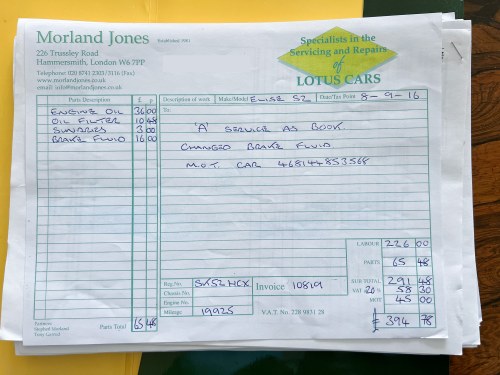 Morland Jones Established 1981
226 Trussley Road
Hammersmith, London W6 7PP
Telephone: 020 8741 2303/3116 (Fax)
www.morlandjones.co.uk
email: info@morlandjones.co.uk
Specialists in the
Servicing and Repairs
of
LOTUS CARS
Parts Description £ p
ENGINE OIL 36 00
OIL FILTER 10 48
SUNDRIES 3 00
BRAKE FLUID 16 00
Parts Total 65 48
Description of work Make/Model ELISE S2 Date/Tax Point 8-9-16
To:
'A' SERVICE AS BOOK.
CHANGED BRAKE FLUID
M.O.T. CAR 468144853568
LABOUR 226 00
PARTS 65 48
SUB TOTAL 291 48
VAT 20 % 58 30
MOT 45 00
£ 394 78
Reg No. SK52 HCX
Chassis No.
Engine No.
Mileage 19925
Invoice 10819
V.A.T. No. 228 9831 28